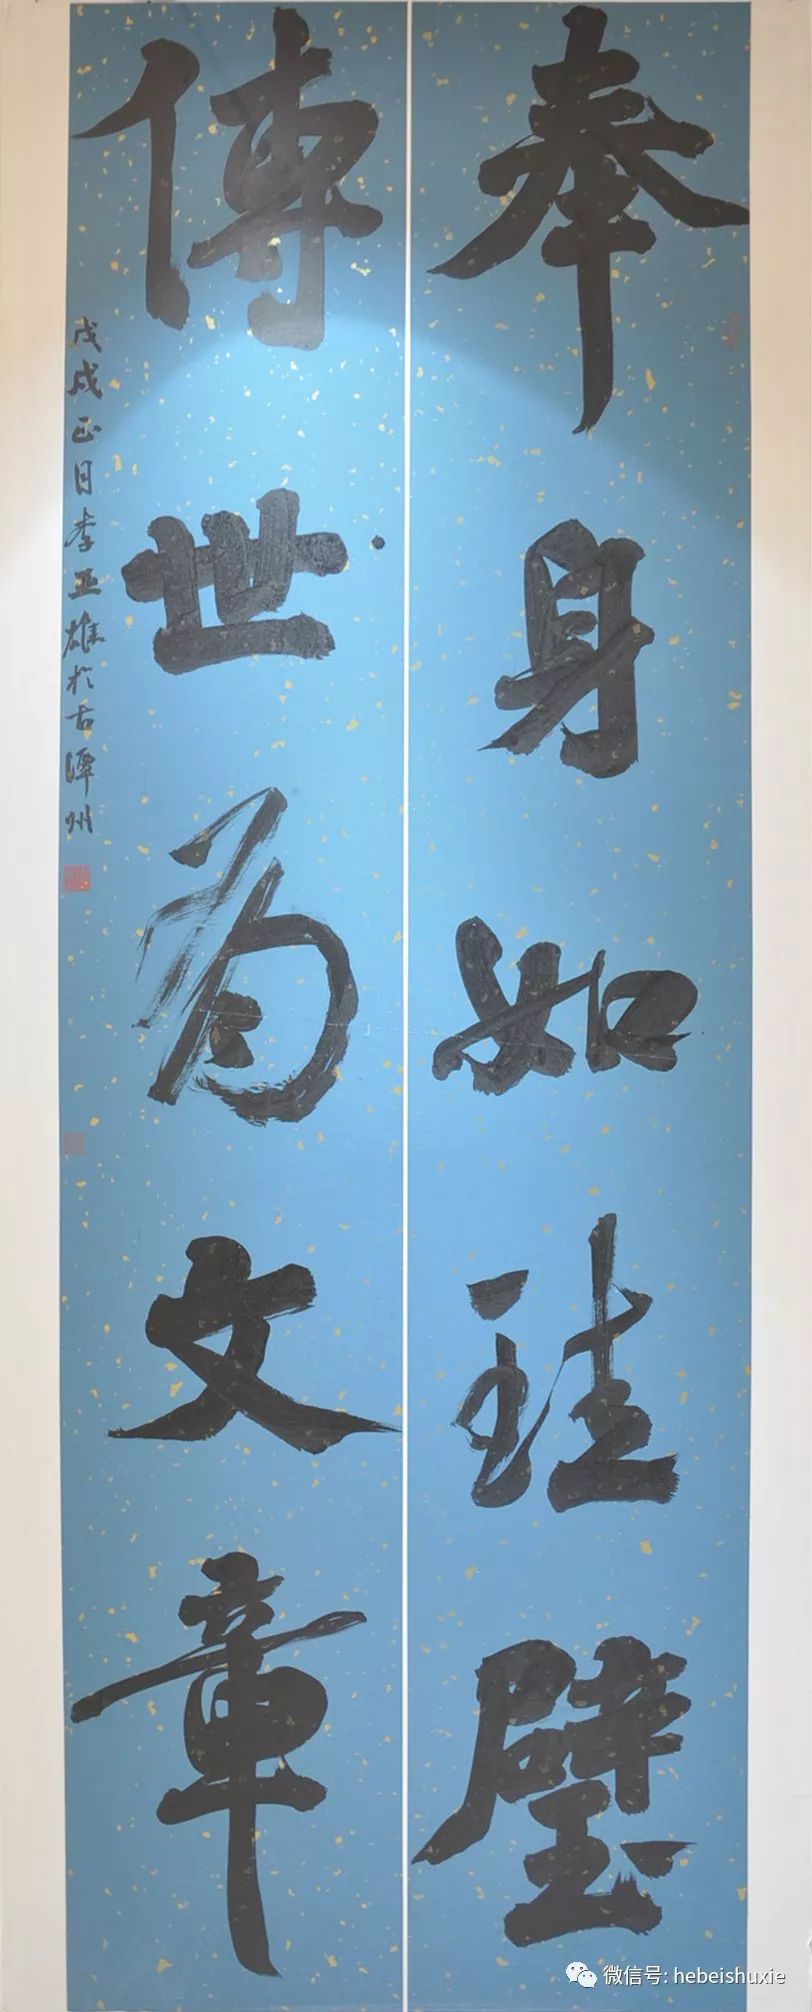 奉身如珪璧
傳世為文章
戊戌正月李亚雄於古潭州
微信号: hebeishuxie